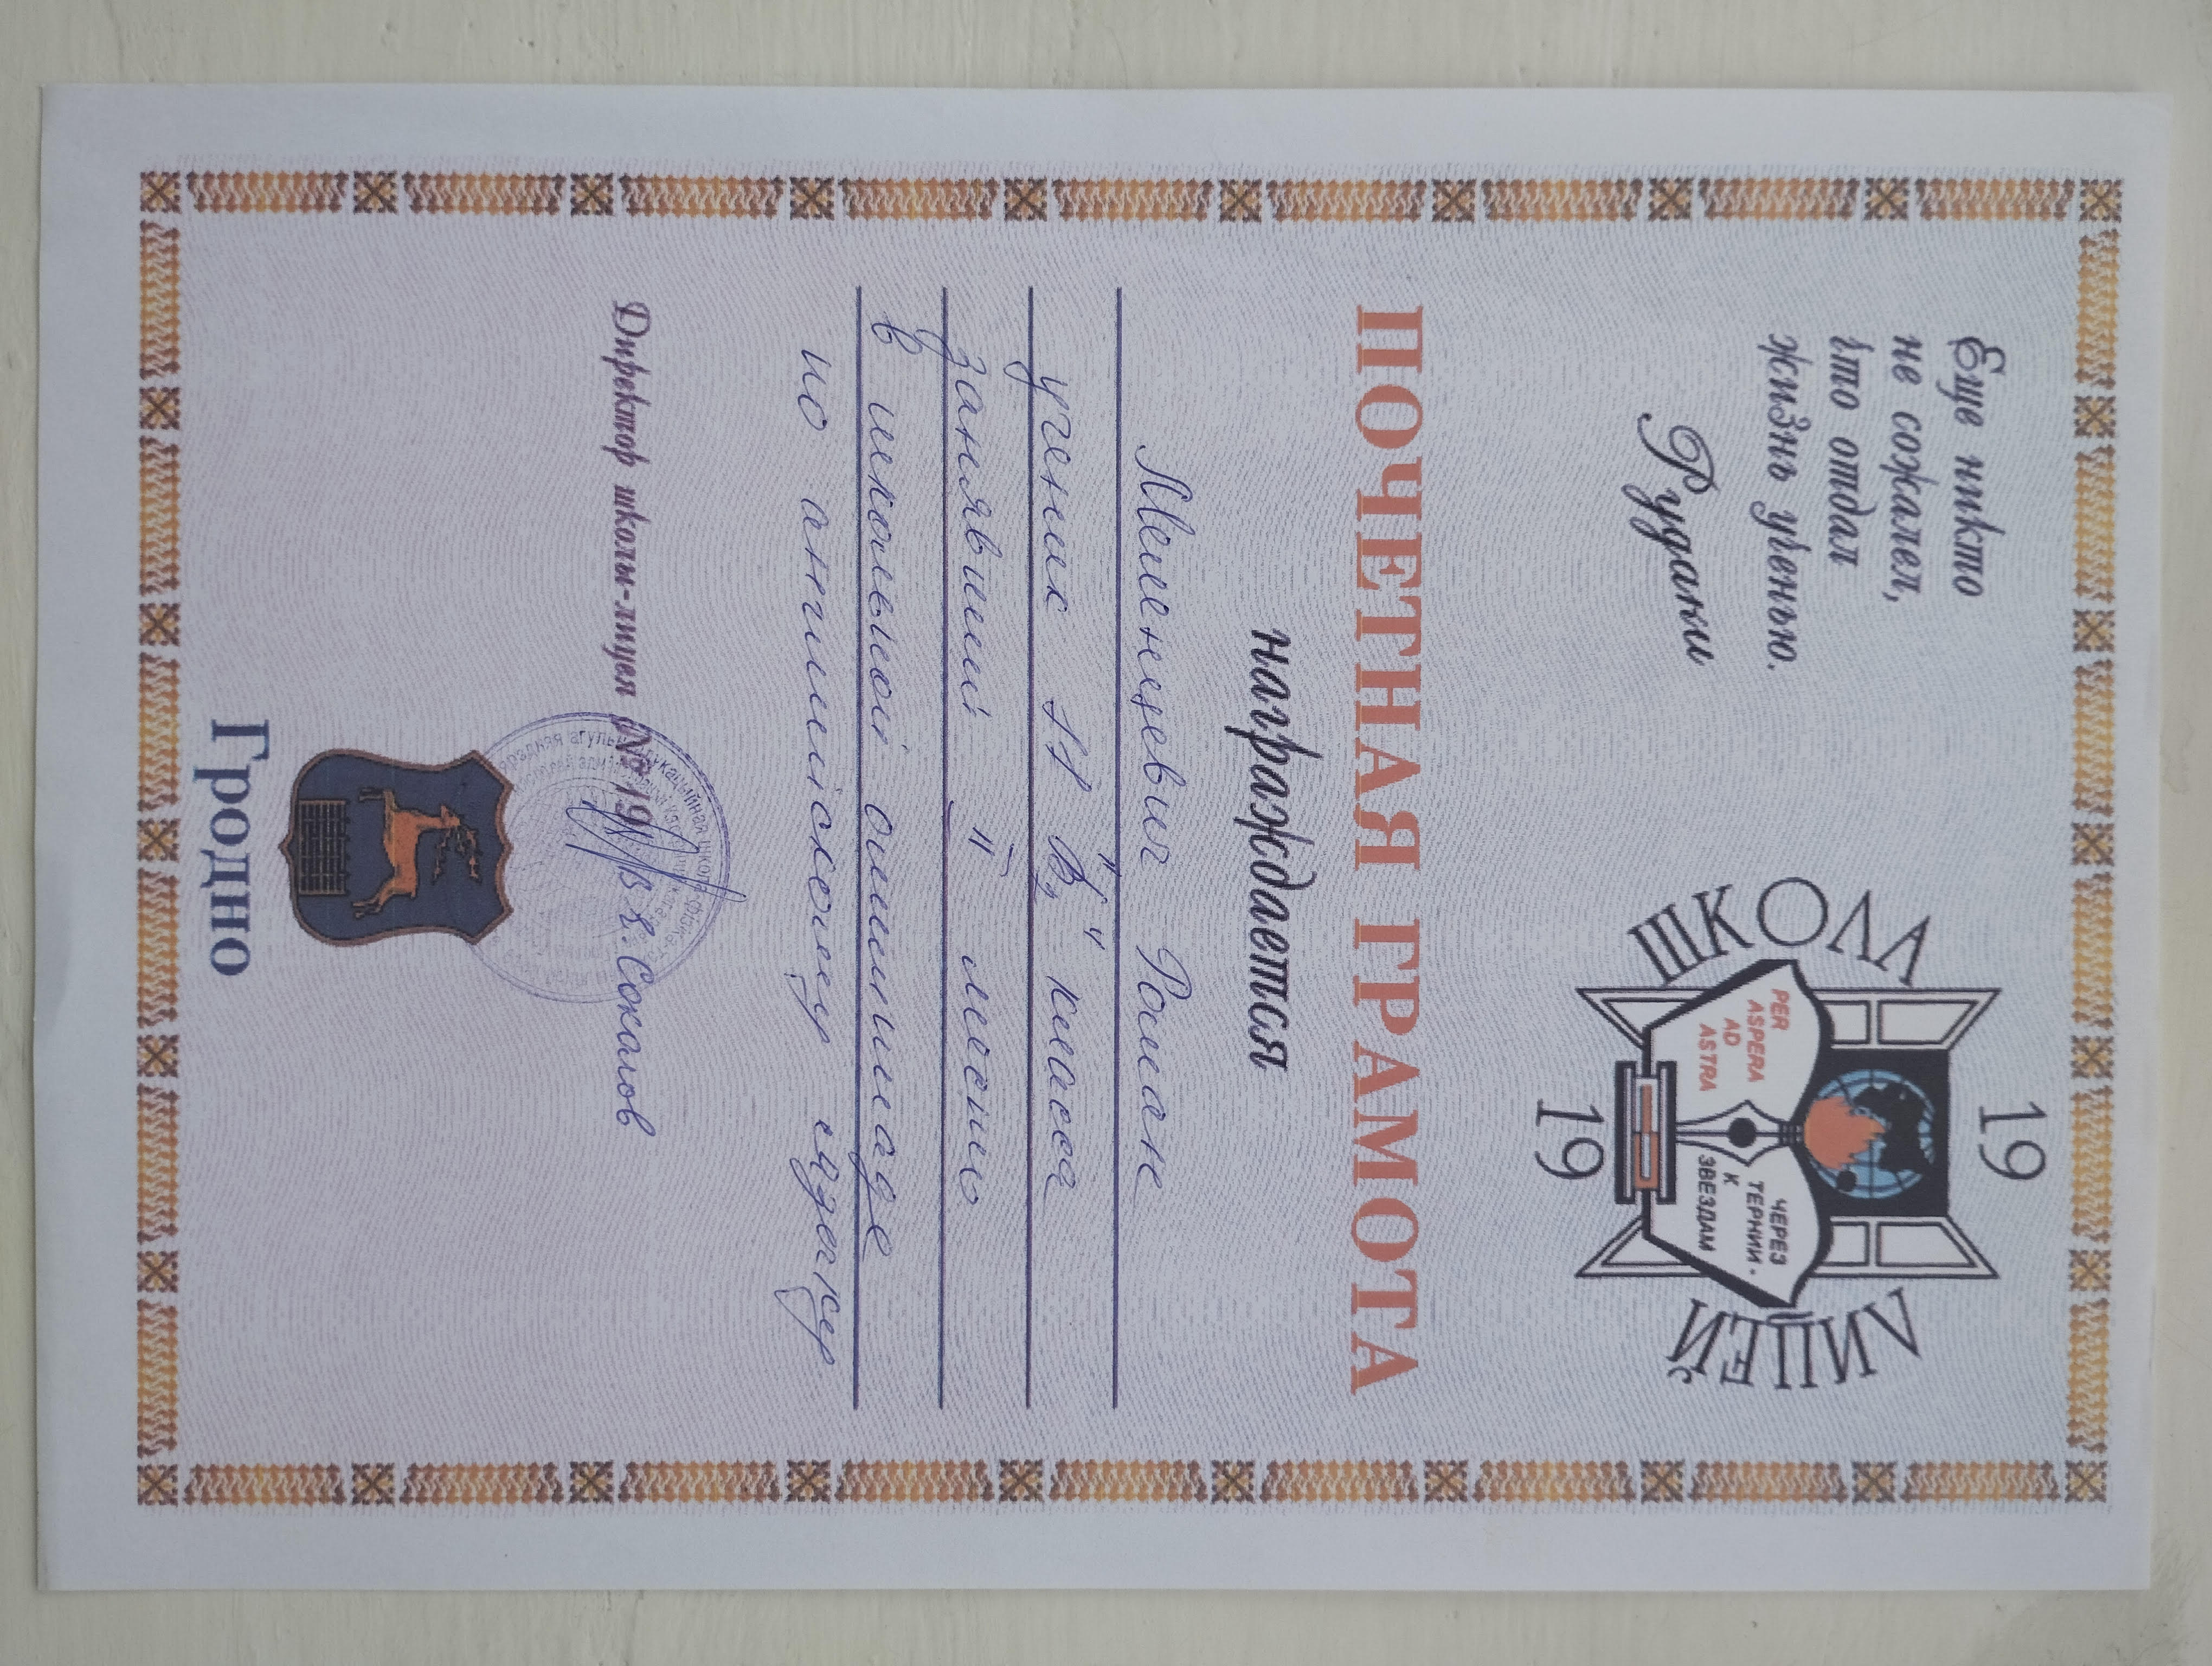 Еще никто
не сожалел,
что отдал
жизнь ученью.
Рудаки
19
ШКОЛА
ЛИЦЕЙ
PER
ASPERA
AD
ASTRA
ЧЕРЕЗ
ТЕРНИИ -
К
ЗВЕЗДАМ
19
ПОЧЕТНАЯ ГРАМОТА
награждается
Меленцевич Роман
ученик 11 "В2" класса
занявший II место
в школьной олимпиаде
по английскому языку
Директор школы-лицея № 19 В.Е. Соколов
адукацыйная школа-фізіка-
Гродно